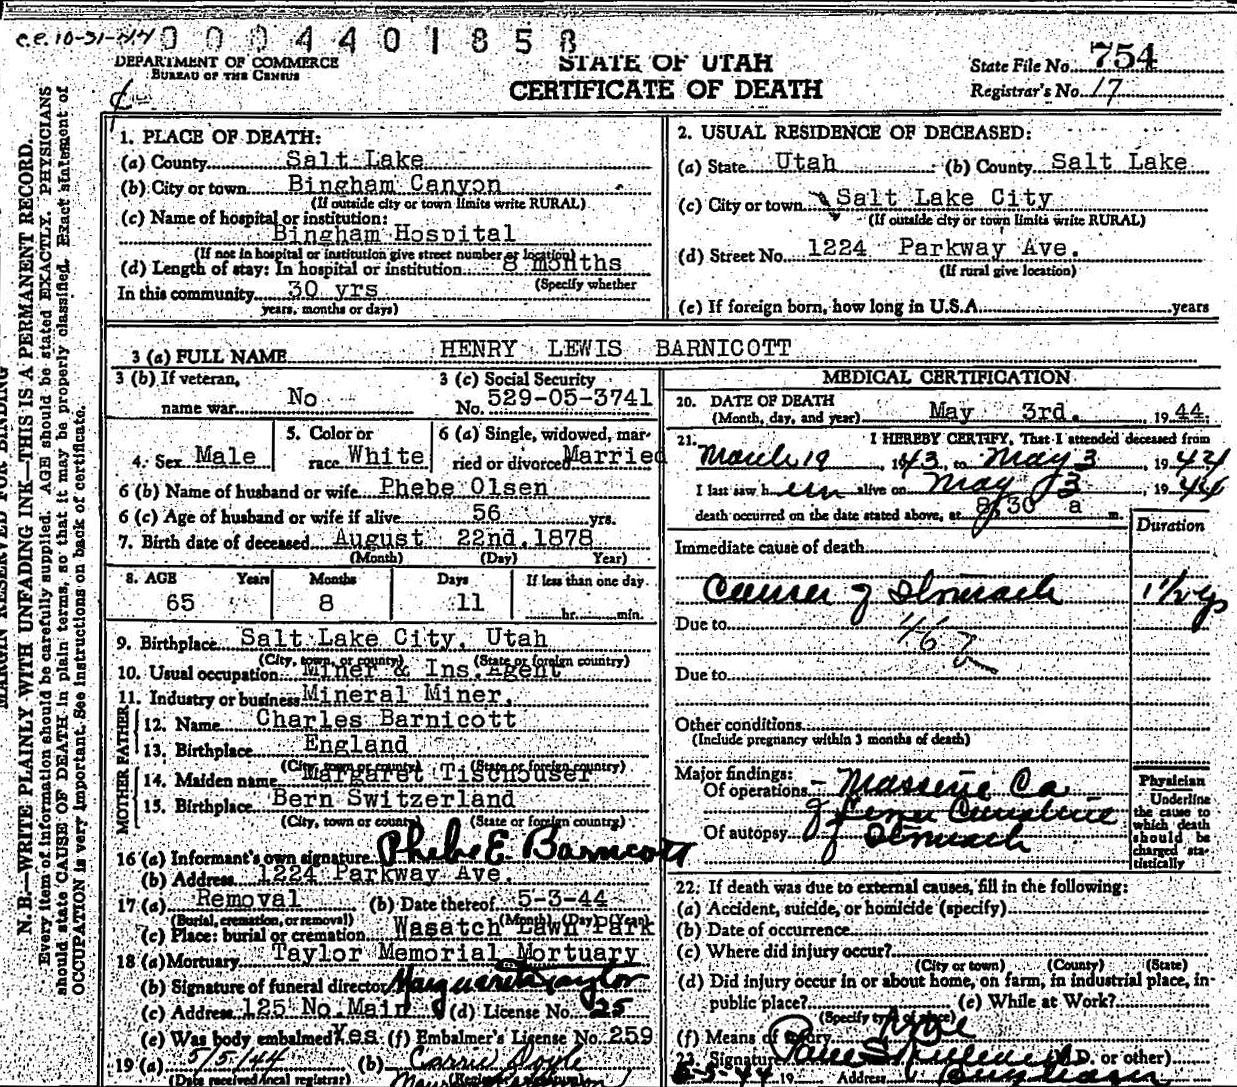 c.e. 10-31-44 0004401858
DEPARTMENT OF COMMERCE
BUREAU OF THE CENSUS
STATE OF UTAH
CERTIFICATE OF DEATH
State File No. 754
Registrar's No. 17
1. PLACE OF DEATH:
(a) County Salt Lake
(b) City or town Bingham Canyon
(If outside city or town limits write RURAL)
(c) Name of hospital or institution:
Bingham Hospital
(If not in hospital or institution give street number or location)
(d) Length of stay: In hospital or institution 8 months
(Specify whether
In this community 30 yrs
years, months or days)
2. USUAL RESIDENCE OF DECEASED:
(a) State Utah (b) County Salt Lake
(c) City or town Salt Lake City
(If outside city or town limits write RURAL)
(d) Street No. 1224 Parkway Ave.
(If rural give location)
(e) If foreign born, how long in U.S.A. years
3 (a) FULL NAME HENRY LEWIS BARNICOTT
3 (b) If veteran,
name war No
3 (c) Social Security
No. 529-05-3741
4. Sex Male
5. Color or
race White
6 (a) Single, widowed, mar-
ried or divorced Married
6 (b) Name of husband or wife Phebe Olsen
6 (c) Age of husband or wife if alive 56 yrs.
7. Birth date of deceased August 22nd, 1878
(Month) (Day) Year)
8. AGE Years Months Days If less than one day
65 8 11 hr. min.
9. Birthplace Salt Lake City, Utah
(City, town, or county) (State or foreign country)
10. Usual occupation Miner & Ins. Agent
11. Industry or business Mineral Miner.
FATHER
12. Name Charles Barnicott
13. Birthplace England
(City, town or county) (State or foreign country)
MOTHER
14. Maiden name Margaret Tischouser
15. Birthplace Bern Switzerland
(City, town or county) (State or foreign country)
16 (a) Informant's own signature Phebe E. Barnicott
(b) Address 1224 Parkway Ave.
17 (a) Removal (b) Date thereof 5-3-44
(Burial, cremation, or removal) (Month) (Day) (Year)
(c) Place: burial or cremation Wasatch Lawn Park
18 (a) Mortuary Taylor Memorial Mortuary
(b) Signature of funeral director Marguerite Taylor
(c) Address 125 No. Main (d) License No. 25
(e) Was body embalmed Yes (f) Embalmer's License No. 259
19 (a) 5/5/44 (b) Carrie Doyle
(Date received local registrar)
MEDICAL CERTIFICATION
20. DATE OF DEATH
(Month, day, and year) May 3rd. 1944
21. I HEREBY CERTIFY, That I attended deceased from
March 19, 1943, to May 3, 1944
I last saw him alive on May 3, 1944
death occurred on the date stated above, at 8:30 a m.
Duration
Immediate cause of death
Cancer of Stomach 1 1/2 yrs
Due to 46
Due to
Other conditions
(Include pregnancy within 3 months of death)
Major findings:
Of operations - Massive Ca
of
Of autopsy Stomach
Physician
Underline
the cause to
which death
should be
charged sta-
tistically
22. If death was due to external causes, fill in the following:
(a) Accident, suicide, or homicide (specify)
(b) Date of occurrence
(c) Where did injury occur?
(City or town) (County) (State)
(d) Did injury occur in or about home, on farm, in industrial place, in-
public place? (e) While at Work?
(Specify type of place)
(f) Means of injury
23. Signature (M.D. or other)
5-5-44 19 Address Bingham
MARGIN RESERVED FOR BINDING
N. B.—WRITE PLAINLY WITH UNFADING INK—THIS IS A PERMANENT RECORD.
Every item of information should be carefully supplied. AGE should be stated EXACTLY. PHYSICIANS
should state CAUSE OF DEATH in plain terms, so that it may be properly classified. Exact statement of
OCCUPATION is very important. See instructions on back of certificate.